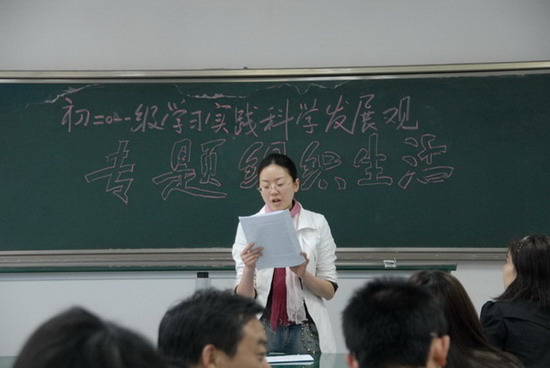 初二0一一级学习实践科学发展观
专题组织生活